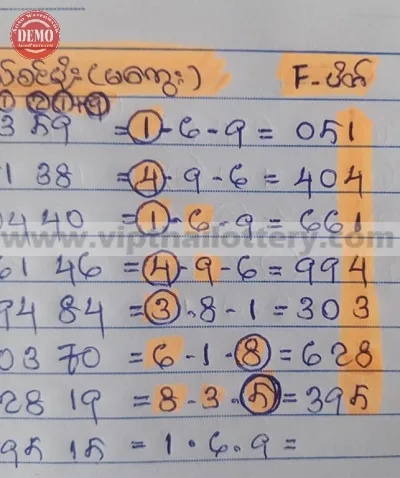 DEMO
(မကွေး) F-ပိတ်
① ②①+④
3 59 = 1-6-9 = 051
1 38 = 4-9-6 = 404
04 40 = 1-6-9 = 661
www.vipthailottery.com
61 46 = 4-9-6 = 994
94 84 = 3.8-1 = 303
03 70 = 6-1-8 = 628
28 19 = 8-3.5 = 395
95 15 = 1.6.9 =